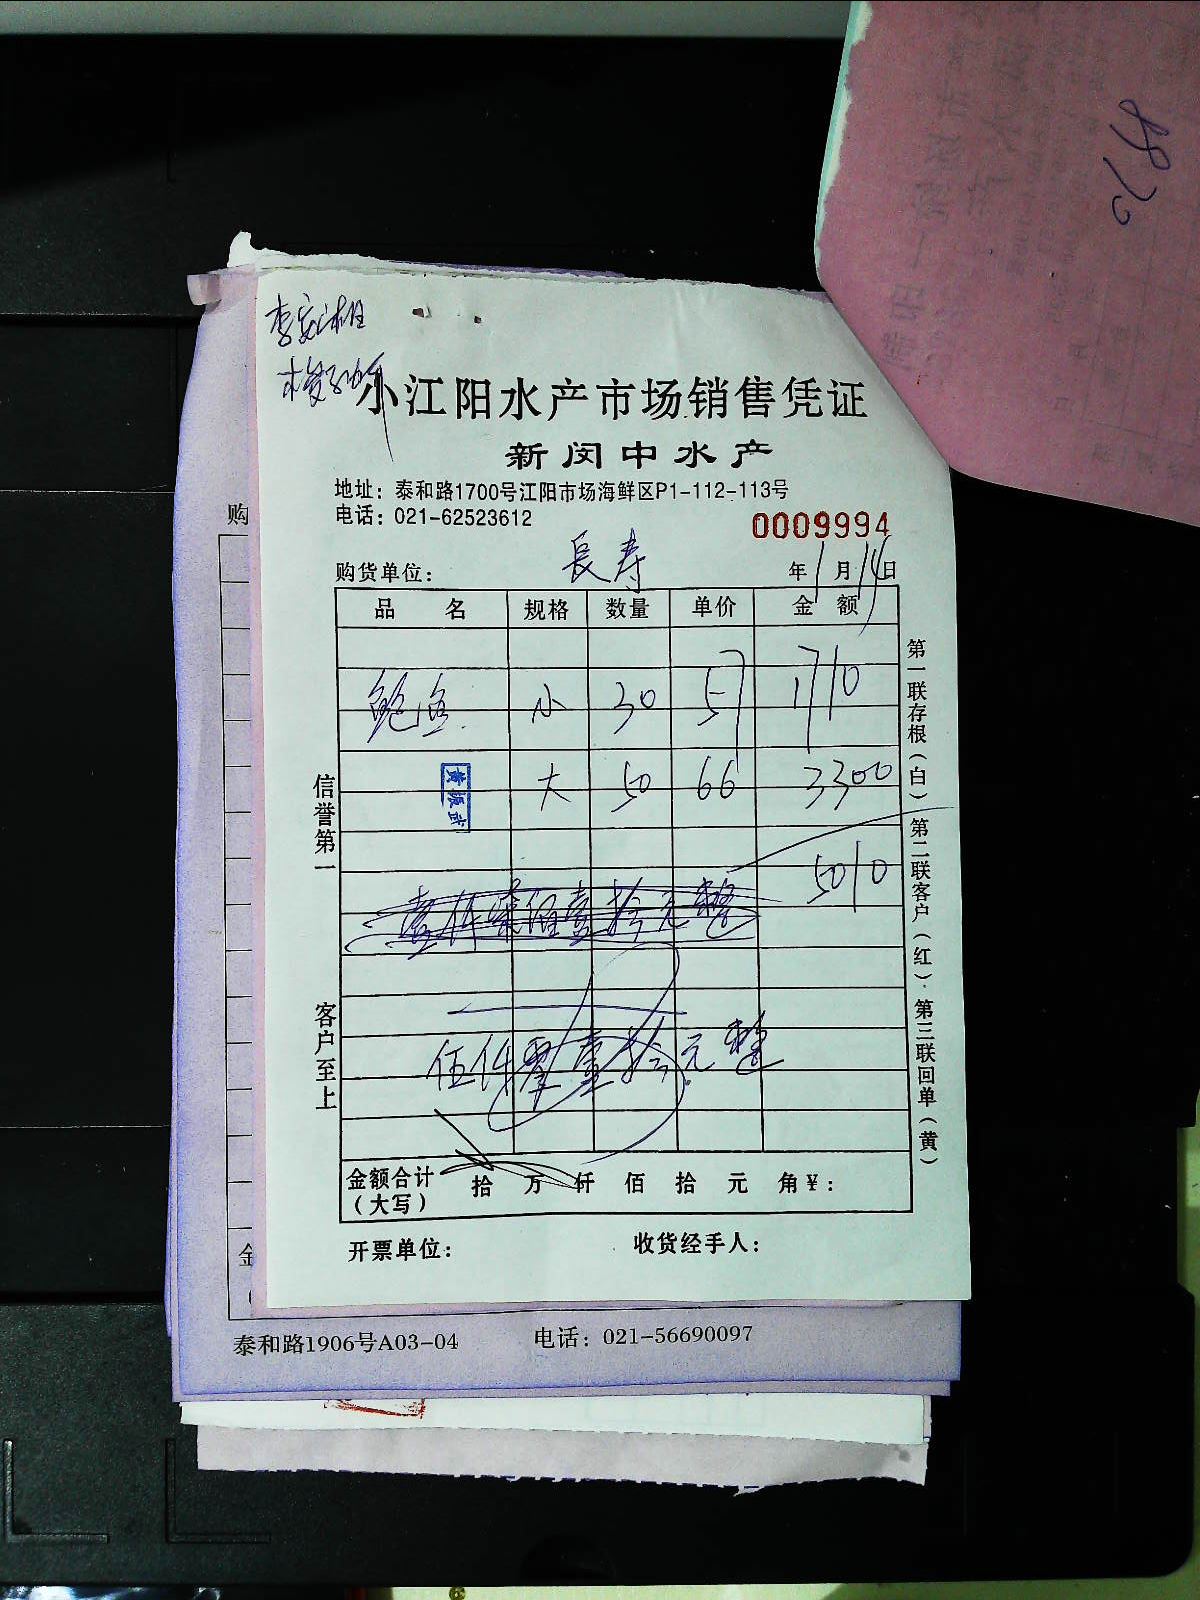 小江阳水产市场销售凭证
新闵中水产
地址：泰和路1700号江阳市场海鲜区P1-112-113号
电话：021-62523612
0009994
购货单位： 長寿 年 1 月 14 日
品 名 规格 数量 单价 金 额
鲍鱼 小 30 57 1710
大 50 66 3300
黄振武
5010
壹仟柒佰壹拾元整
伍仟零壹拾元整
金额合计
（大写） 拾 万 仟 佰 拾 元 角 ¥：
开票单位： 收货经手人：
信誉第一
客户至上
第一联存根（白）第二联客户（红）第三联回单（黄）
购
金
泰和路1906号A03-04 电话：021-56690097